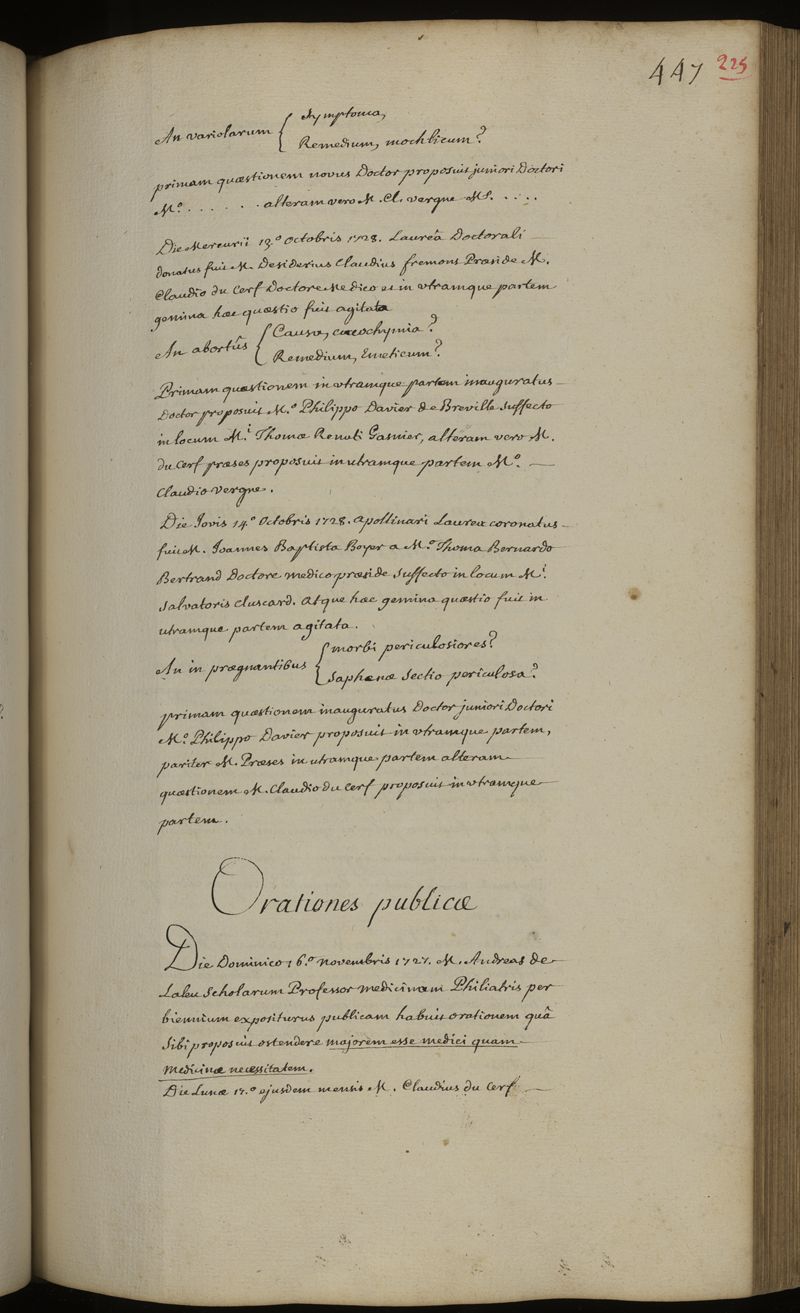 447 225
An variolarum { Symptoma,
Remedium, mochlicum?
primam quæstionem novus Doctor proposuit juniori Doctori
M.º . . . . . . alteram vero M. Cl. Vergne M.s. . . . .
Die Mercurii 13.º Octobris 1728. Laureâ Doctorali
donatus fuit M. Desiderius Claudius fremont Præside M.
Claudio du Cerf Doctore Medico et in utramque partem
gemina hæc quæstio fuit agitata
An abortûs { Causa, cacochymia?
Remedium, Emeticum?
Primam quæstionem in utramque partem inauguratus
Doctor proposuit M.º Philippo Davier de Breville suffecto
in locum M.i Thomæ Renati Gasnier, alteram vero M.
du Cerf præses proposuit in utramque partem M.º
Claudio Vergne.
Die Jovis 14.º Octobris 1728. apollinari Laurea coronatus
fuit M. Joannes Baptista Boyer a M.º Thoma Bernardo
Bertrand Doctore medico præside suffecto in locum M.i
Salvatoris Cluscard. Atque hæc gemina quæstio fuit in
utramque partem agitata.
An in prægnantibus { morbi periculosiores?
Saphenæ sectio periculosa?
primam quæstionem inauguratus Doctor juniori Doctori
M.º Philippo Davier proposuit in utramque partem,
pariter M. Præses in utramque partem alteram
quæstionem M. Claudio du Cerf proposuit in utramque
partem.
Orationes publicæ
Die Dominico 16.º novembris 1727. M. Andreas de
Laleu Scholarum Professor medicinam Philiatris per
biennium expositurus publicam habuit orationem quâ
sibi proposuit ostendere majorem esse medici quam
Medicinæ necessitatem.
Die Lunæ 17.º ejusdem mensis M. Claudius du Cerf